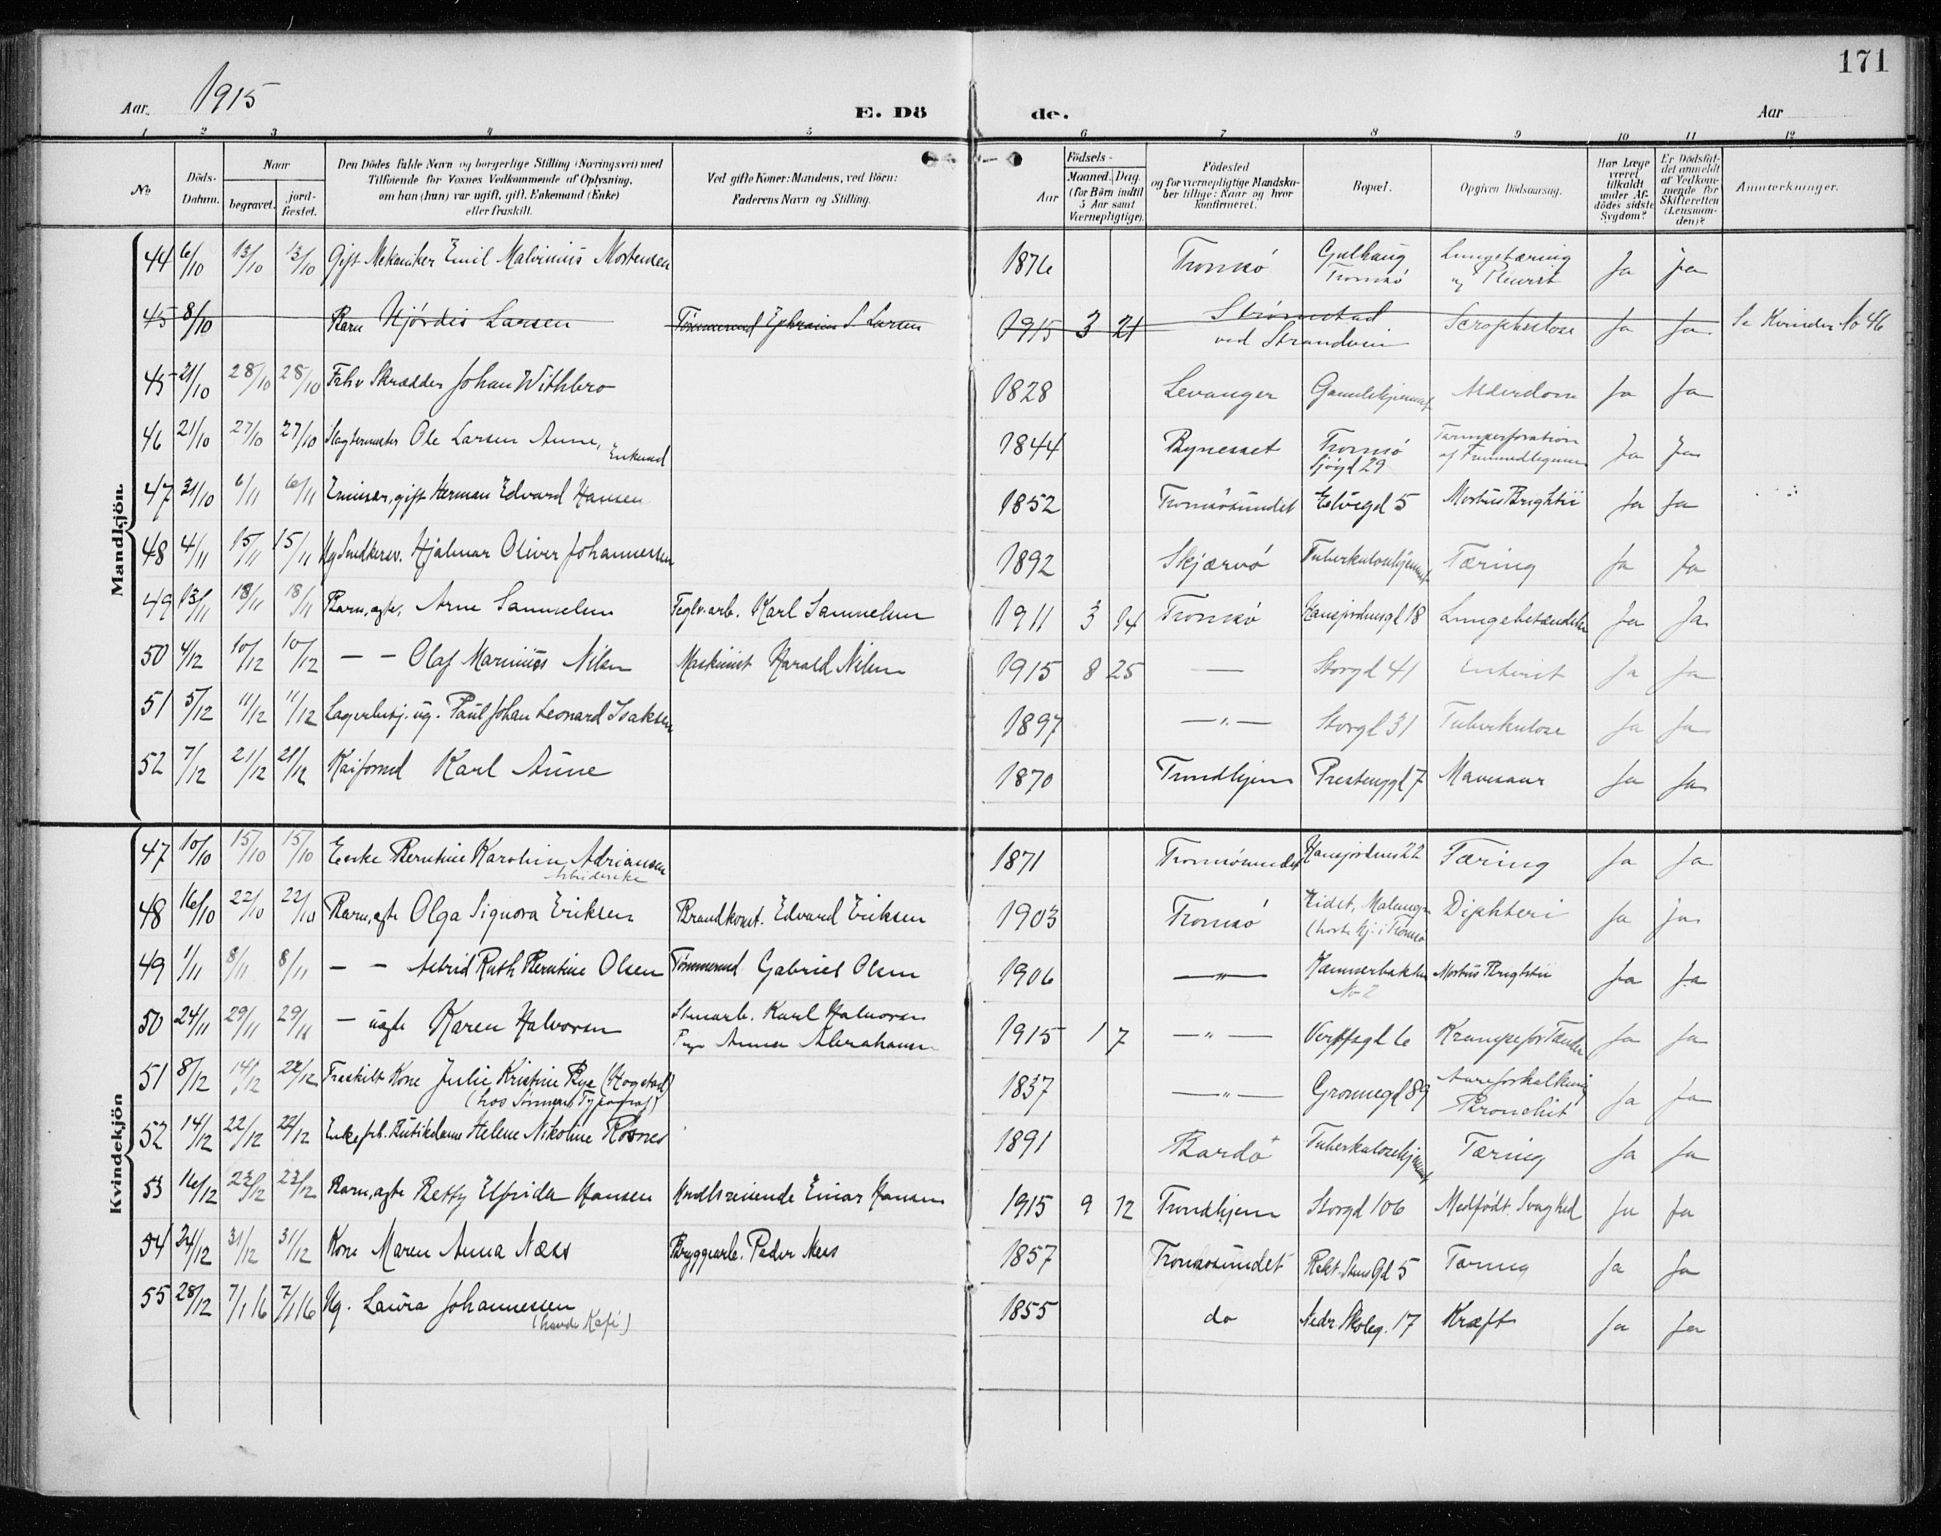 171
Aar. 1915 E. Dö de. Aar
1 2 3 4 5 6 7 8 9 10 11 12
No Döds-Datum. Naar begravet. jordfæstet. Den Dödes fulde Navn og borgerlige Stilling (Næringsvei) med Tilföiende for Voxnes Vedkommende af Oplysning, om han (hun) var ugift, gift, Enkemand (Enke) eller fraskilt. Ved gifte Koner: Mandens, ved Börn: Faderens Navn og Stilling. Födsels- Aar Maaned. Dag (for Börn indtil 5 Aar samt Værnepligtige). Födested og for værnepligtige Mandskaber tillige: Naar og hvor konfirmeret. Bopæl. Opgiven Dödsaarsag. Har Læge været tilkaldt under Afdödes sidste Sygdom? Er Dödsfaldet anmeldt af Vedkommende for Skifteretten (Lensmanden)? Anmærkninger.
Mandkjön
44 6/10 13/10 13/10 Gift Mekaniker Emil Malvinius Mortensen 1876 Tromsö Gulhaug Tromsö Lungetæring og Pleurit Ja Ja
45 8/10 Barn Hjördis Larsen Tömmermd Ephraim S Larsen 1915 3 21 Strömstad ved Strandvein Scrophulose Ja Ja Se Kvinder No 46
45 21/10 28/10 28/10 Fhv Skrædder Johan Withbro 1828 Levanger Gamlehjemmet Alderdom Ja Ja
46 21/10 27/10 27/10 Slagtermester Ole Larsen Aune, Enkemd 1844 Bynesset Tromsö Sjögd 29 Tarmperforation Ja Ja
47 31/10 6/11 6/11 Emissær, gift Herman Edvard Hansen 1852 Tromsösundet Elvegd 5 Morbus Brightii Ja Ja
48 4/11 15/11 15/11 Ug Snedkersv. Hjalmar Oliver Johannessen 1892 Skjærvö Tuberkulosehjemmet Tæring Ja Ja
49 13/11 18/11 18/11 Barn, ægte, Arne Samuelsen Teglv.arb. Karl Samuelsen 1911 3 14 Tromsö Hansjordnesgd 18 Lungebetændelse Ja Ja
50 4/12 10/12 10/12 — — Olaf Marinius Nilsen Maskinist Harald Nilsen 1915 8 25 — Storgd 41 Enterit Ja Ja
51 5/12 11/12 11/12 Lagerbetj. ug. Paul Johan Leonard Isaksen 1897 —"— Storgd 31 Tuberkulose Ja Ja
52 7/12 21/12 21/12 Kaiformd Karl Aune 1870 Trondhjem Prestenggd 7 Mavesaar Ja Ja
Kvindekjön
47 10/10 15/10 15/10 Enke Berntine Karolin Adriansen Arbeiderenke 1871 Tromsösundet Hansjordnes 22 Tæring Ja Ja
48 16/10 22/10 22/10 Barn, ægte Olga Signora Eriksen Brandkonst. Edvard Eriksen 1903 Tromsö Kidet, Malangen Diphteri Ja Ja
49 1/11 8/11 8/11 — — Astrid Ruth Berntine Olsen Tömmermd Gabriel Olsen 1906 —"— Kæmnerbakken No 2 Morbus Brightii Ja Ja
50 24/11 29/11 29/11 — uægte Karen Halvorsen Stenarb. Karl Halvorsen Anna Abrahamsen 1915 1 7 —"— Verftsgd 6 Krampe for Tænder Ja Ja
51 8/12 14/12 22/12 Fraskilt Kone Julie Kristine Bye (Hogstad) (hos Sönnen Typograf) 1837 —"— Grönnegd 89 Aareforkalkning Bronchit Ja Ja
52 14/12 22/12 22/12 Enke, frh. Butikdame Helene Nikoline Rosnes 1891 Bardö Tuberkulosehjemmet Tæring Ja Ja
53 16/12 23/12 23/12 Barn, ægte Betty Elfrida Hansen Handlsreisende Einar Hansen 1915 9 12 Trondhjem Storgd 106 Medfödt Svaghed Ja Ja
54 24/12 31/12 31/12 Kone Maren Anna Næss Bryggearb. Peder Næss 1857 Tromsösundet Rekt. Stens Gd 5 Tæring Ja Ja
55 28/12 7/1 16 7/1 16 Ug. Laura Johannessen (havde Kafé) 1855 do Nedr. Skoleg. 17 Kræft Ja Ja